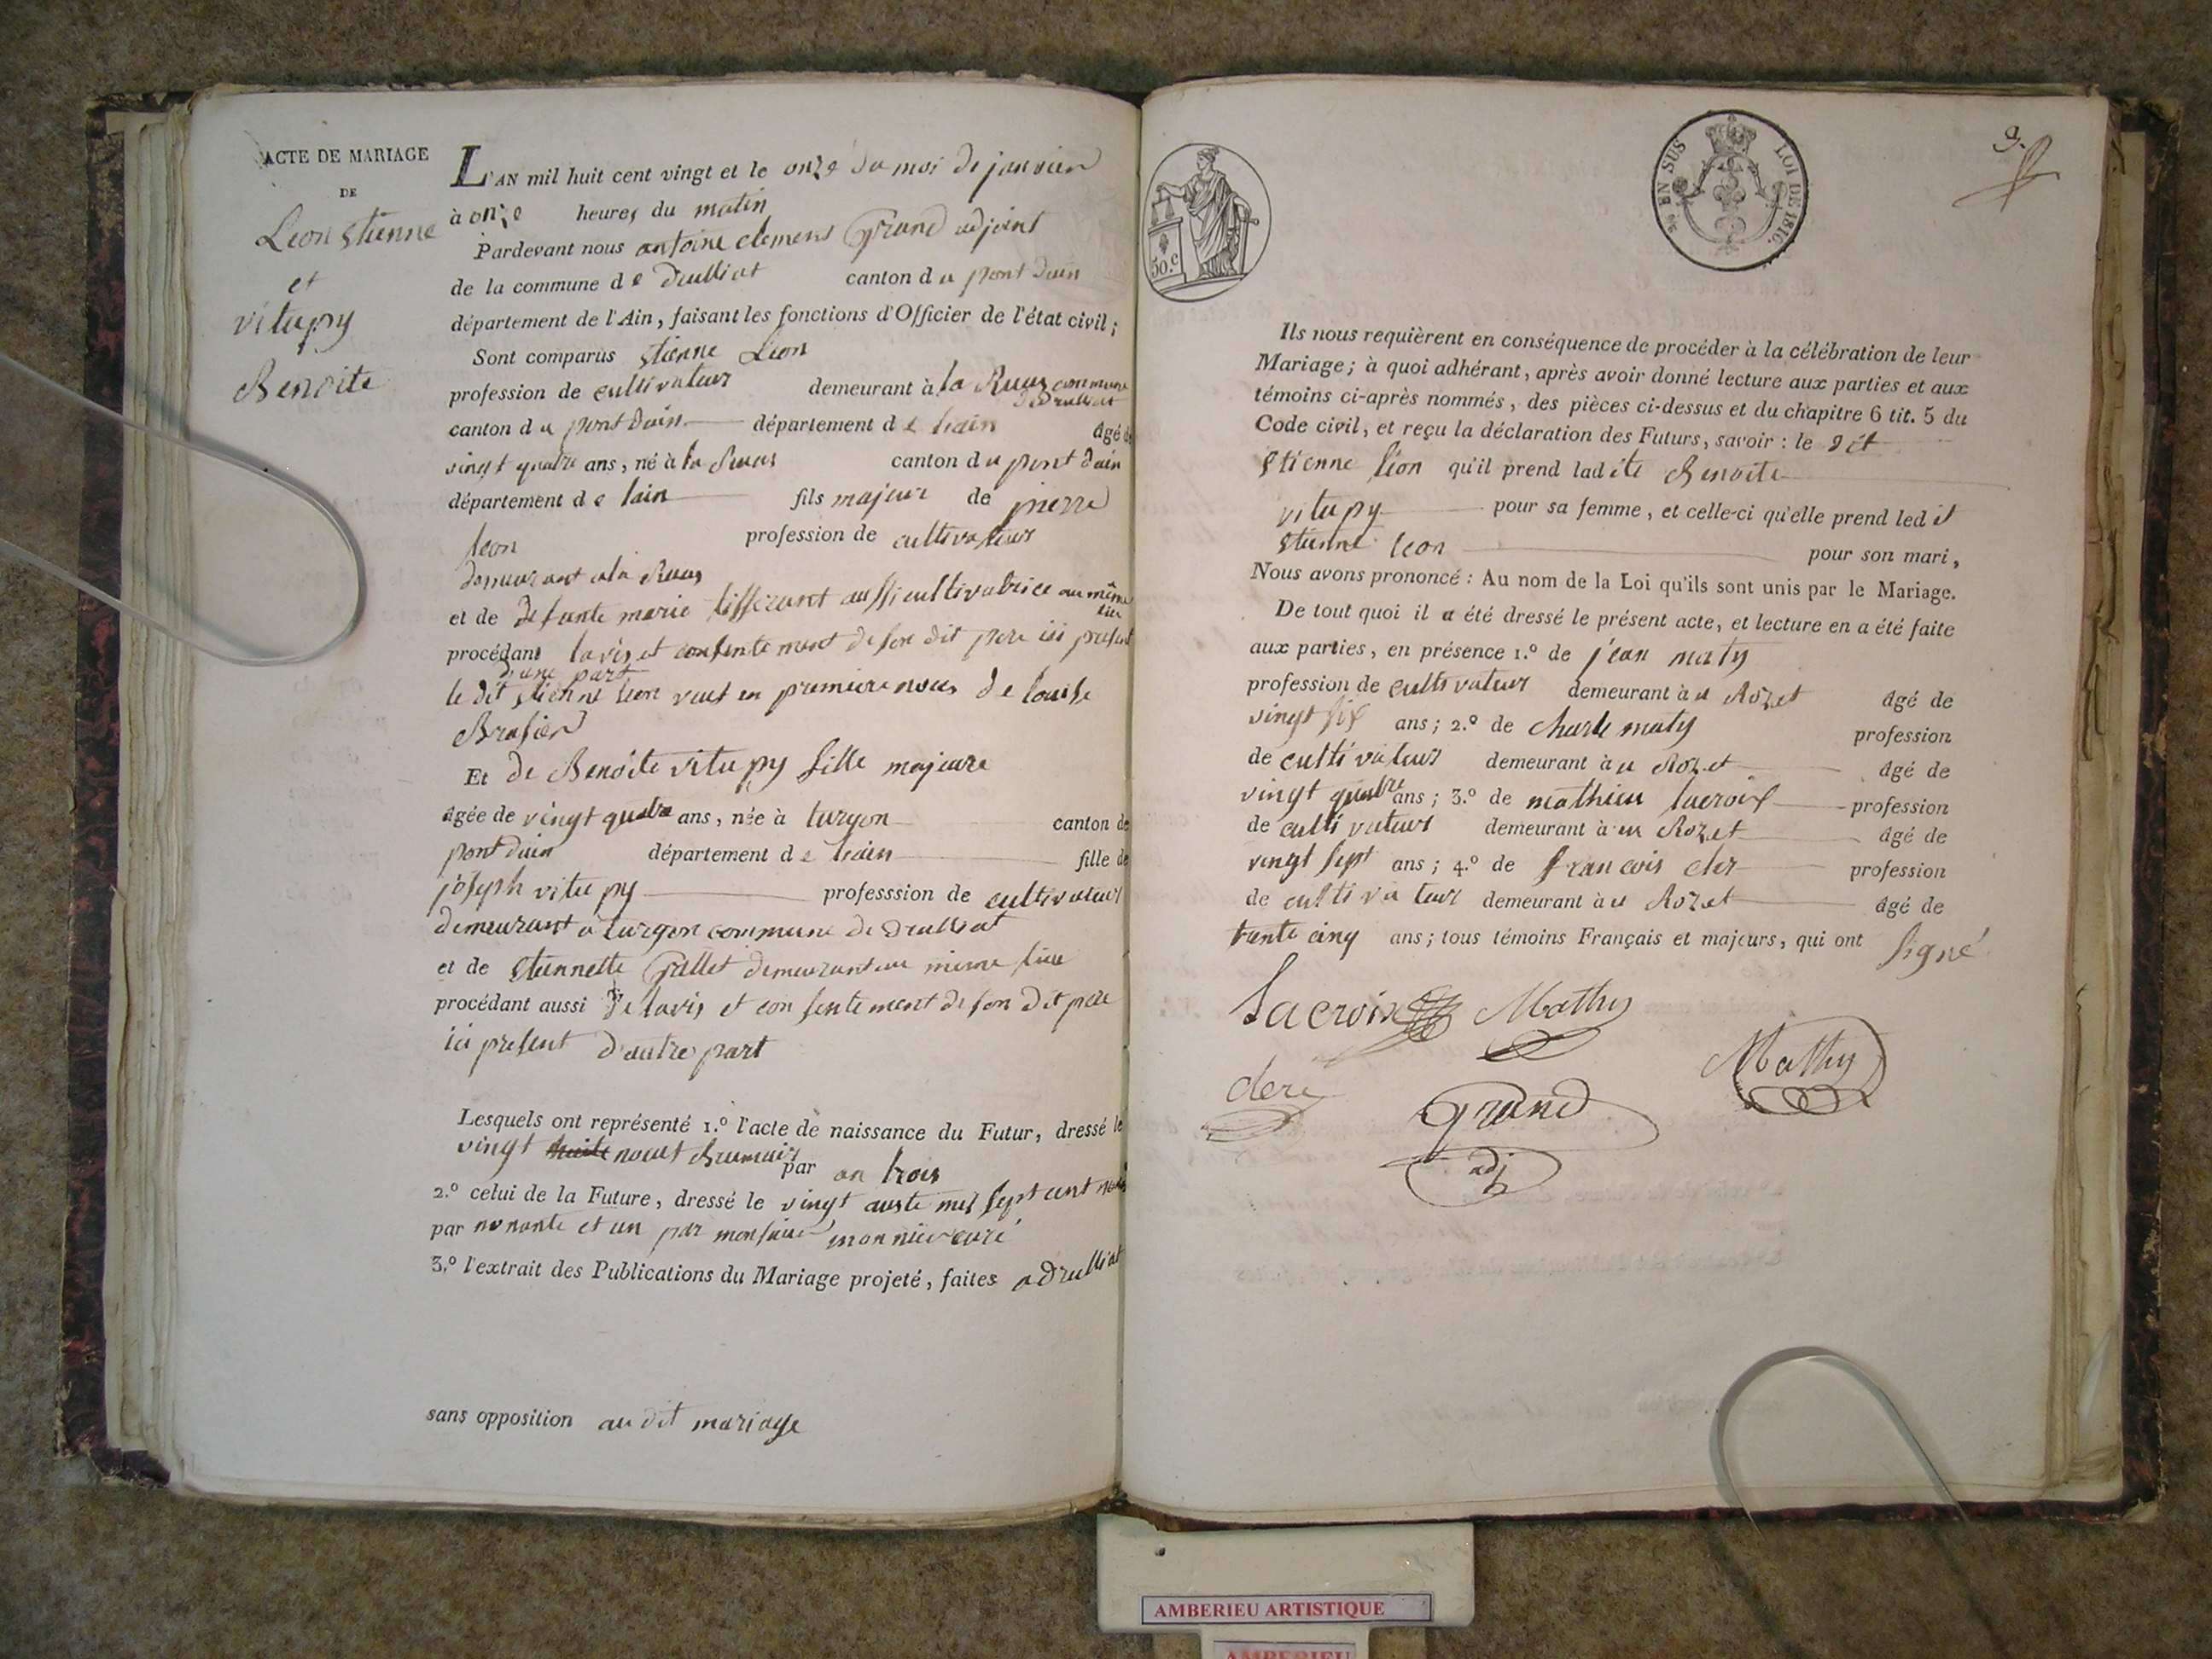 ACTE DE MARIAGE
DE
Leon Etienne
et
vitupy
Benoite
L'AN mil huit cent vingt et le onze du mois de janvier
à onze heures du matin
Pardevant nous antoine clement Grand adjoint
de la commune de Drulliat canton du pont dain
département de l'Ain, faisant les fonctions d'Officier de l'état civil;
Sont comparus Etienne Leon
profession de cultivateur demeurant à la Ruas commune de Drulliat
canton du pont dain département de lain âgé de
vingt quatre ans, né à la Ruas canton du pont dain
département de lain fils majeur de pierre
leon profession de cultivateur
demeurant a la Ruas
et de defunte marie tisserant aussi cultivatrice au même lieu
procédant lavis et consentement de son dit pere ici present
d'une part
le dit Etienne leon veuf en premiere noces de louise
Brasier
Et de Benoite vitupy fille majeure
âgée de vingt quatre ans, née à turgon canton de
pont dain département de lain fille de
joseph vitupy professsion de cultivateur
demeurant à turgon commune de drulliat
et de Etiennette Pallet demeurant au meme lieu
procédant aussi de lavis et consentement de son dit pere
ici present d'autre part
Lesquels ont représenté 1.º l'acte de naissance du Futur, dressé le
vingt neuf Brumair
par an trois
2.º celui de la Future, dressé le vingt auste mil sept cent
par nonante et un par monsieur monnier curé
3.º l'extrait des Publications du Mariage projeté, faites a drulliat
sans opposition au dit mariage
50.c
EN SUS LOI DE 1816.
9.
Ils nous requièrent en conséquence de procéder à la célébration de leur
Mariage; à quoi adhérant, après avoir donné lecture aux parties et aux
témoins ci-après nommés, des pièces ci-dessus et du chapitre 6 tit. 5 du
Code civil, et reçu la déclaration des Futurs, savoir: le dit
Etienne léon qu'il prend ladite Benoite
vitupy pour sa femme, et celle-ci qu'elle prend ledit
Etienne leon pour son mari,
Nous avons prononcé: Au nom de la Loi qu'ils sont unis par le Mariage.
De tout quoi il a été dressé le présent acte, et lecture en a été faite
aux parties, en présence 1.º de jean maty
profession de cultivateur demeurant àu Rozet âgé de
vingt six ans; 2.º de charle maty profession
de cultivateur demeurant àu Rozet âgé de
vingt quatre ans; 3.º de mathieu lacroix profession
de cultivateur demeurant àu Rozet âgé de
vingt sept ans; 4.º de francois cler profession
de cultivateur demeurant àu Rozet âgé de
trente cinq ans; tous témoins Français et majeurs, qui ont signé
Lacroix Mathy
Mathy
clerc
Grand
adj
AMBERIEU ARTISTIQUE
AMBERIEU